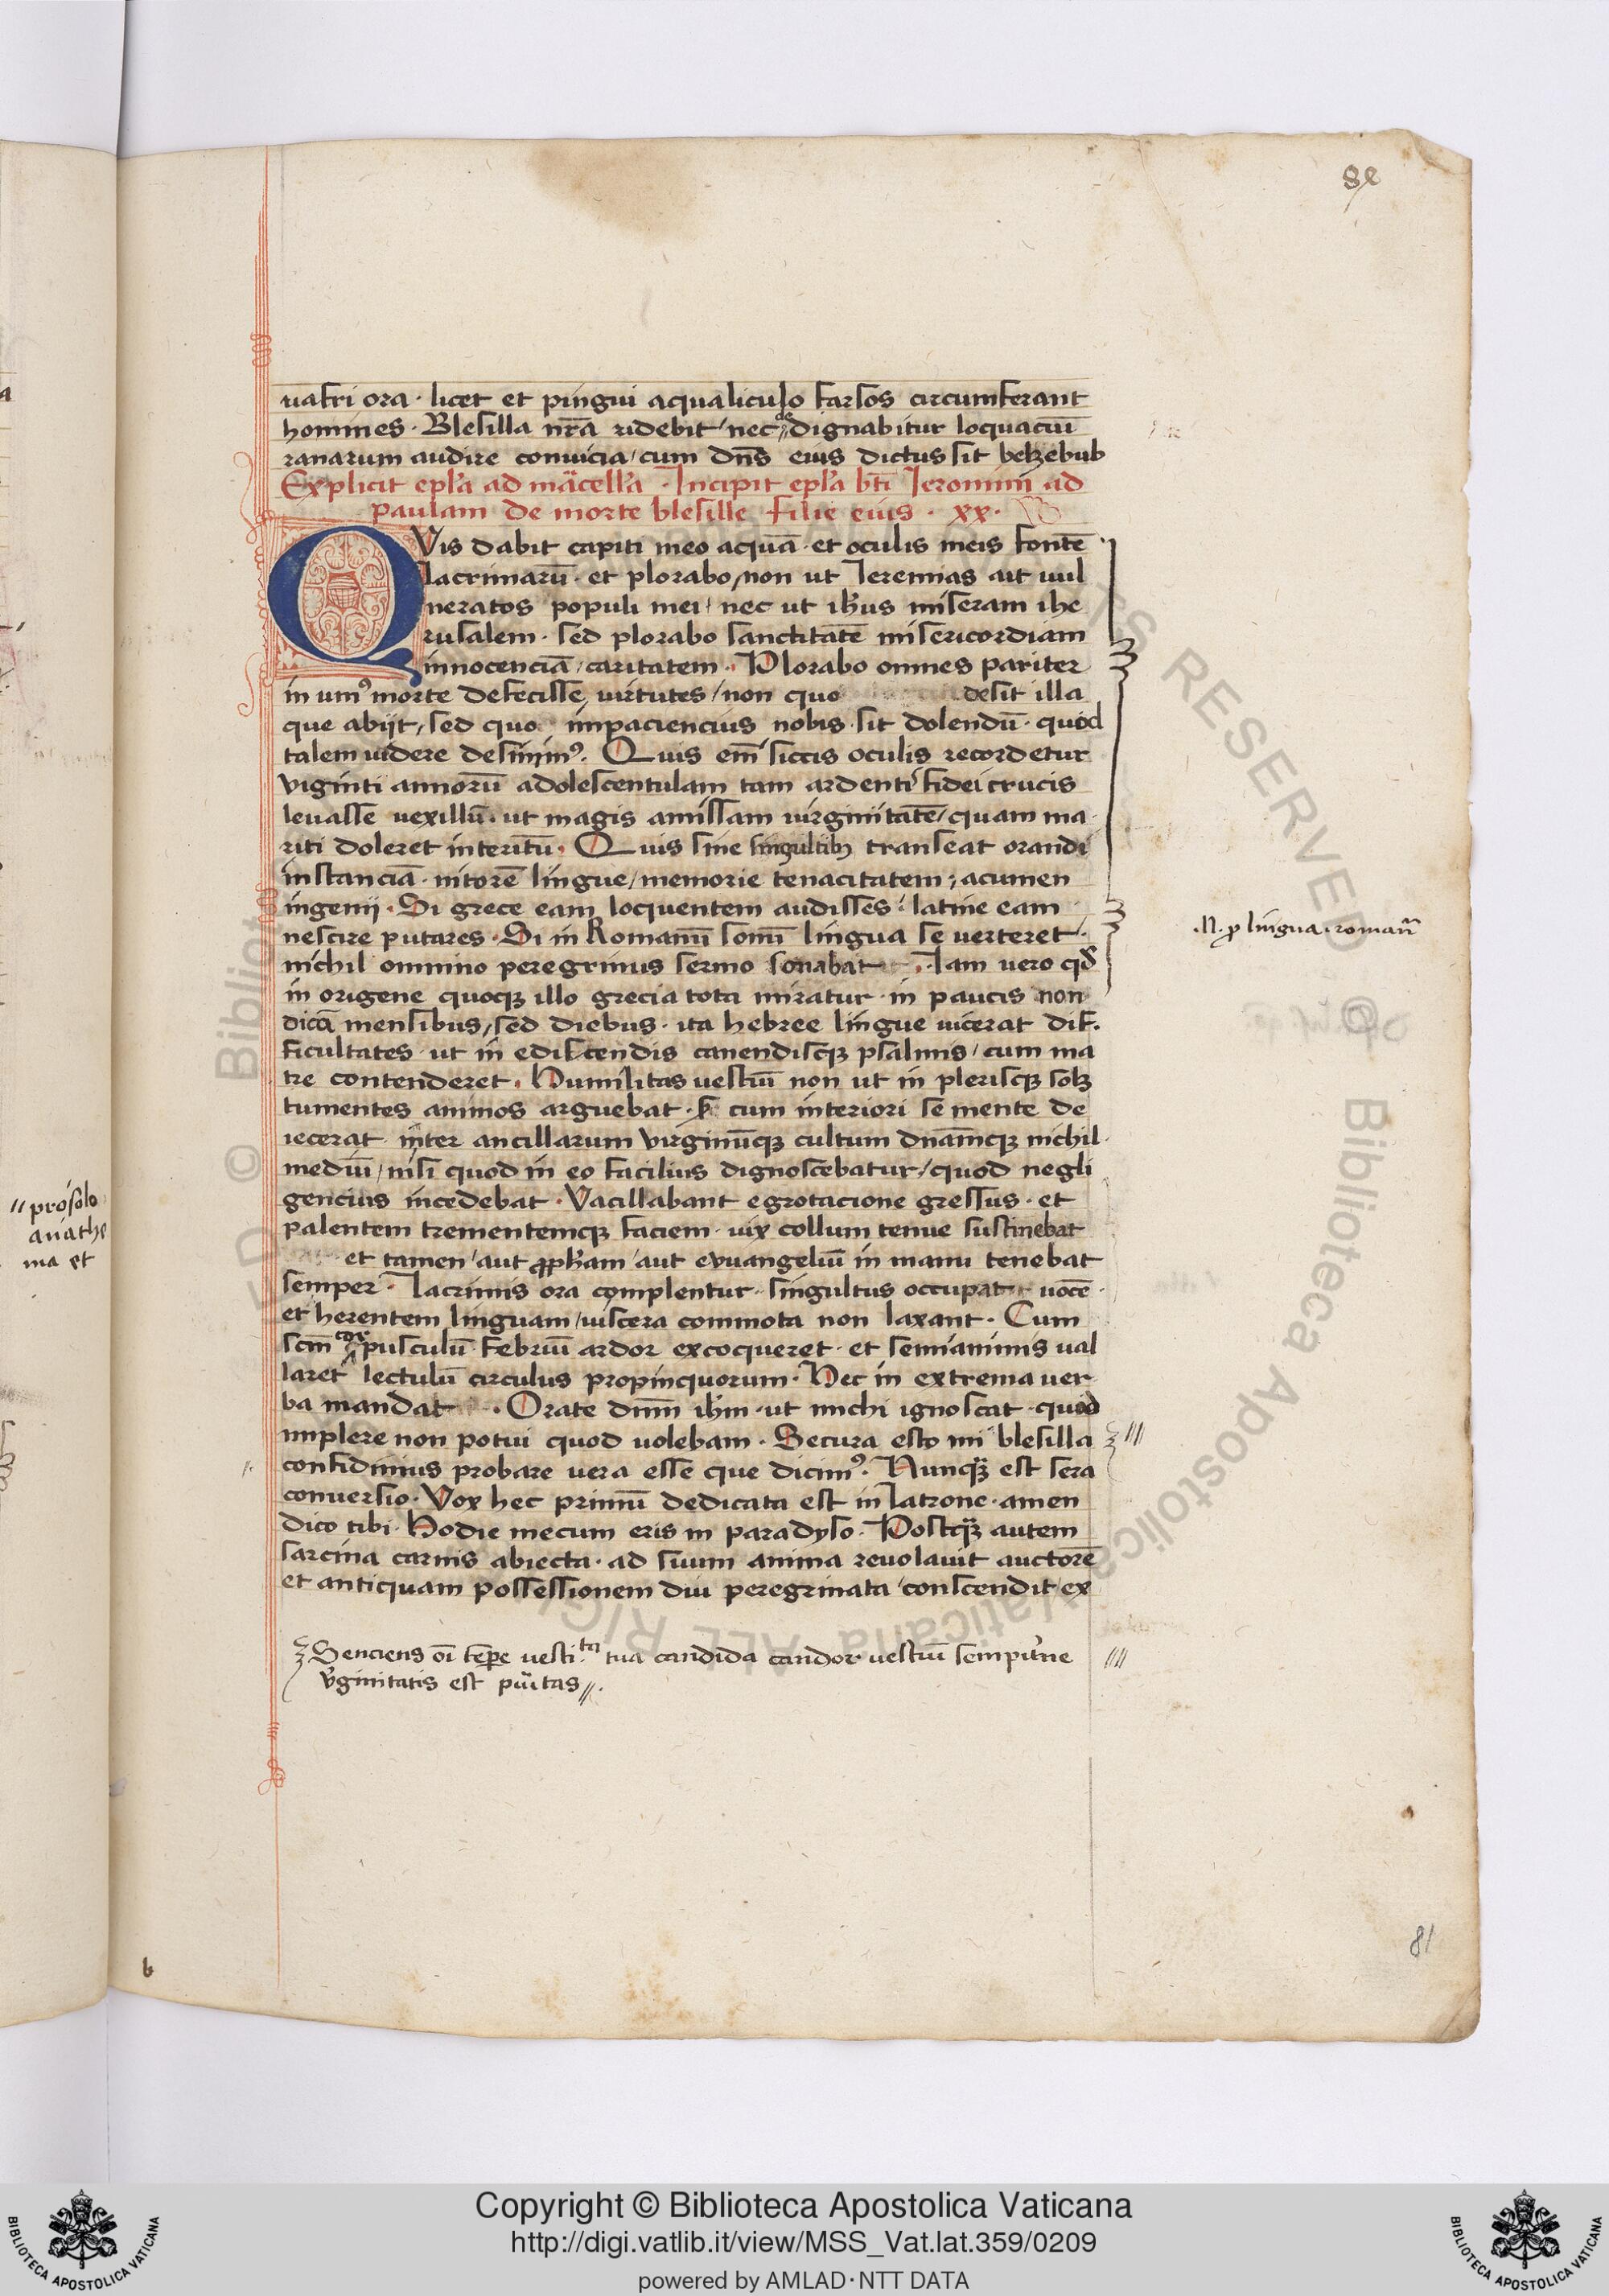 8e
uafri ora · licet et pingui aqualiculo farsos circumferant
homines · Blesilla nr̄a ridebit / nec dedignabitur loquaciū
ranarum audire conuicia / cum dn̄s eius dictus sit belzebub
Explicit ep̄la ad marcellā · Incipit ep̄la bt̄i Ieronimi ad
paulam de morte blesille filie eius · xx ·
QVis dabit capiti meo aquā · et oculis meis fontē
lacrimarū · et plorabo / non ut Ieremias ait uul
neratos populi mei / nec ut ih̄us miseram ihe
rusalem · sed plorabo sanctitatē misericordiam
innocenciā / caritatem · Plorabo omnes pariter
in uniꝰ morte defecisse uirtutes / non quo desit illa
que abijt / sed quo impaciencius nobis sit dolendū · quod
talem uidere desinimꝰ · Quis em̄ siccis oculis recordetur
viginti annorū adolescentulam tam ardenti fidei crucis
leuasse uexillū · ut magis amissam uirginitatē / quam ma
riti doleret interitū · Quis sine singultibꝫ transeat orandi
instanciā · nitorē lingue / memorie tenacitatem / acumen
ingenij · Si grece eam loquentem audisses / latine eam
nescire putares · Si in Romanū sonū lingua se uerteret ·
nichil omnino peregrinus sermo sonabat · Iam uero qd̄
in origene quoqꝫ illo grecia tota miratur · in paucis non
dicā mensibus / sed diebus · ita hebree lingue uicerat dif
ficultates · ut in ediscendis canendisqꝫ psalmis / cum ma
tre contenderet · Humilitas uestiū non ut in plerisqꝫ solꝫ
tumentes animos arguebat · s; cum interiori se mente de
iecerat · inter ancillarum virginūqꝫ cultum dnāmqꝫ nichil
mediū / nisi quod in eo facilius dignoscebatur / quod negli
gencius incedebat · Vacillabant egrotacione gressus · et
palentem trementemqꝫ faciem · uix collum tenue sustinebat
et tamen / aut ꝓph̄am / aut evuangeliū in manu tenebat
semper · Lacrimis ora complentur · singultus occupat uocē
et herentem linguam / uiscera commota non laxant · Cum
sc̄m corpusculū febriū ardor excoqueret · et semianimis ual
laret lectulū circulus propinquorum · Hec in extrema uer
ba mandat · Orate dn̄m ih̄m · ut michi ignoscat · quod
implere non potui quod uolebam · Secura esto mi blesilla
confidimus probare uera esse que dicimꝰ · Nunqꝫ est sera
conuersio · Vox hec primū dedicata est in latrone · amen
dico tibi · Hodie mecum eris in paradyso · Postqꝫ autem
sarcina carnis abiecta · ad suum anima reuolauit auctorē
et antiquam possessionem diu peregrinata conscendit / ex
Senciens oī tēpe vesti.ta tua candida candor uestiū sempit̄ne
v̄ginitatis est pūitas
·N· ꝓ lingua · roman̄
prosolo
anathe
ma et
b
81
Copyright © Biblioteca Apostolica Vaticana
http://digi.vatlib.it/view/MSS_Vat.lat.359/0209
powered by AMLAD·NTT DATA
BIBLIOTECA APOSTOLICA VATICANA
BIBLIOTECA APOSTOLICA VATICANA